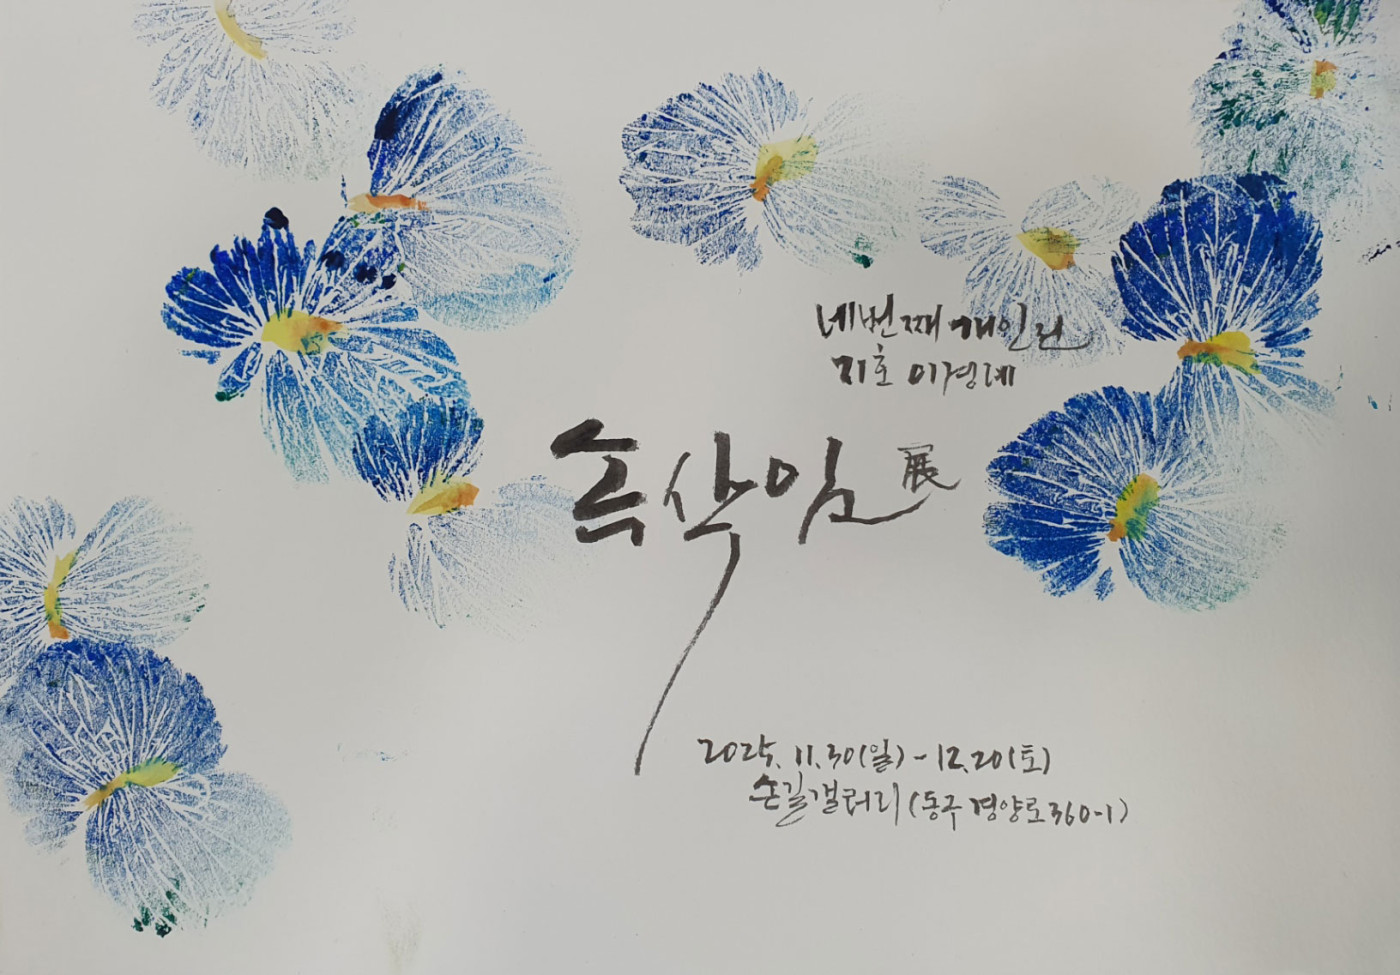 네번째 개인전
지호 이경례
속삭임 展
2025. 11.30(일) - 12.20(토)
손길갤러리 (동구 경양로360-1)